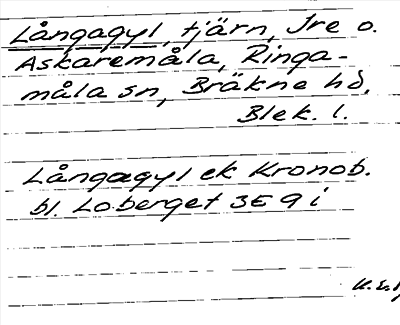 Långagyl, tjärn, Jre o.
Askaremåla, Ringa-
måla sn, Bräkne hd,
Blek. l.
Långagyl ek Kronob.
bl. Loberget 3E 9 i